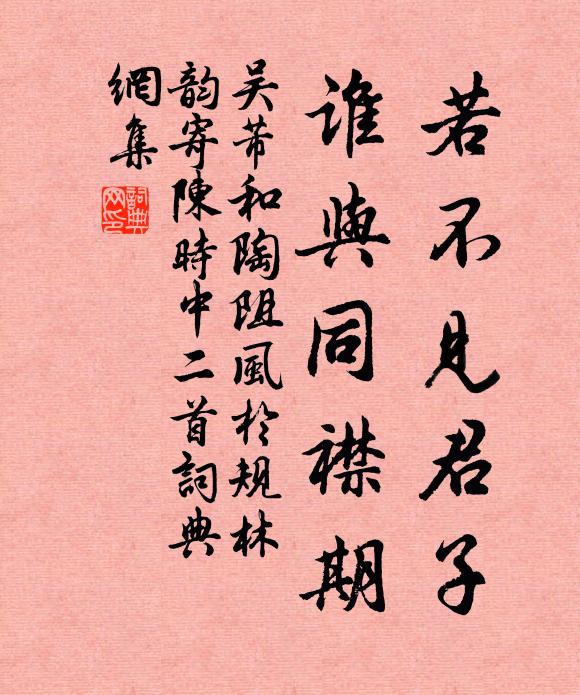 若不見君子
誰與同襟期
吴芾和陶阻風於規林
韵寄陳時中二首詞典
網集
詞典
网印